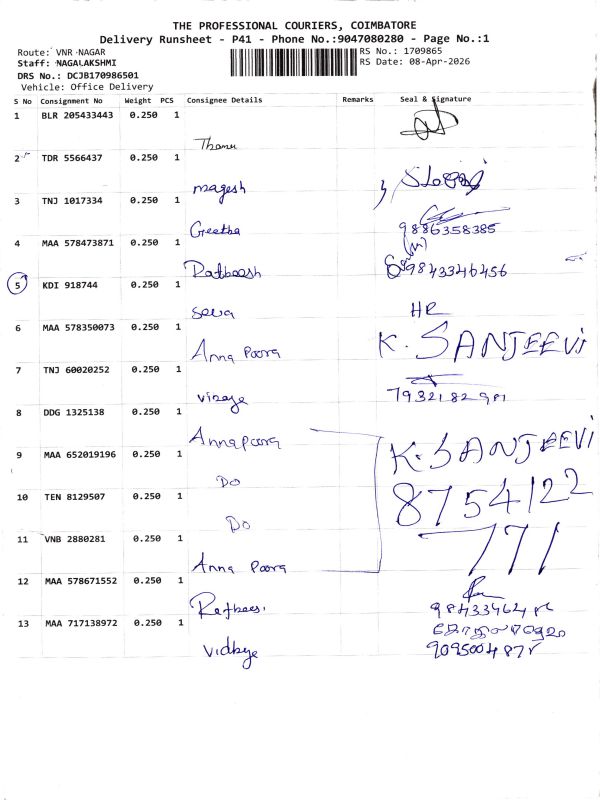 THE PROFESSIONAL COURIERS, COIMBATORE
Delivery Runsheet - P41 - Phone No.:9047080280 - Page No.:1
Route: VNR NAGAR
Staff: NAGALAKSHMI
DRS No.: DCJB170986501
Vehicle: Office Delivery
RS No.: 1709865
RS Date: 08-Apr-2026
S No Consignment No Weight PCS Consignee Details Remarks Seal & Signature
1 BLR 205433443 0.250 1
Thanu
2 TDR 5566437 0.250 1
magesh
3 TNJ 1017334 0.250 1
Geetha 9886358385
4 MAA 578473871 0.250 1
Ratheesh 9843346456
5 KDI 918744 0.250 1
Selva HR
6 MAA 578350073 0.250 1
Anna Poora K. SANJEEVI
7 TNJ 60020252 0.250 1
7932182981
8 DDG 1325138 0.250 1
Annapoorna K. SANJEEVI
9 MAA 652019196 0.250 1
Do 8754122
10 TEN 8129507 0.250 1
Do 771
11 VNB 2880281 0.250 1
Anna Poora
12 MAA 578671552 0.250 1
13 MAA 717138972 0.250 1
Vidhye